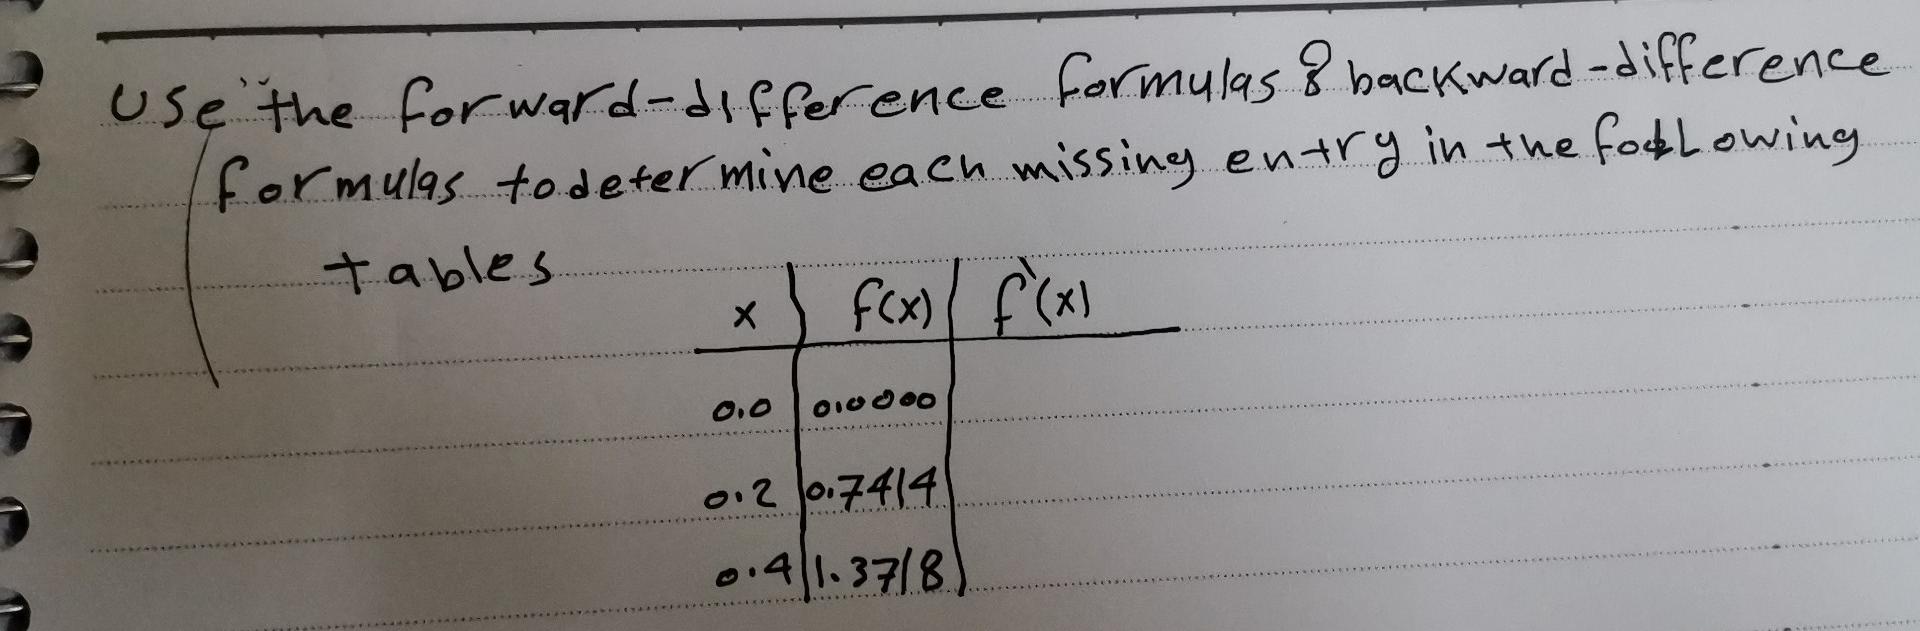 Use the forward-difference formulas & backward-difference
formulas to determine each missing entry in the following
tables
x f(x) f'(x)
0.0 0.0000
0.2 0.7414
0.4 1.3718